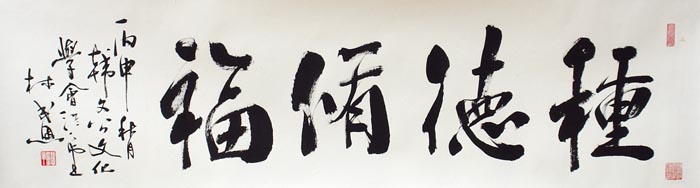 種德脩福
丙申秋月
韓文公文化
學會
林